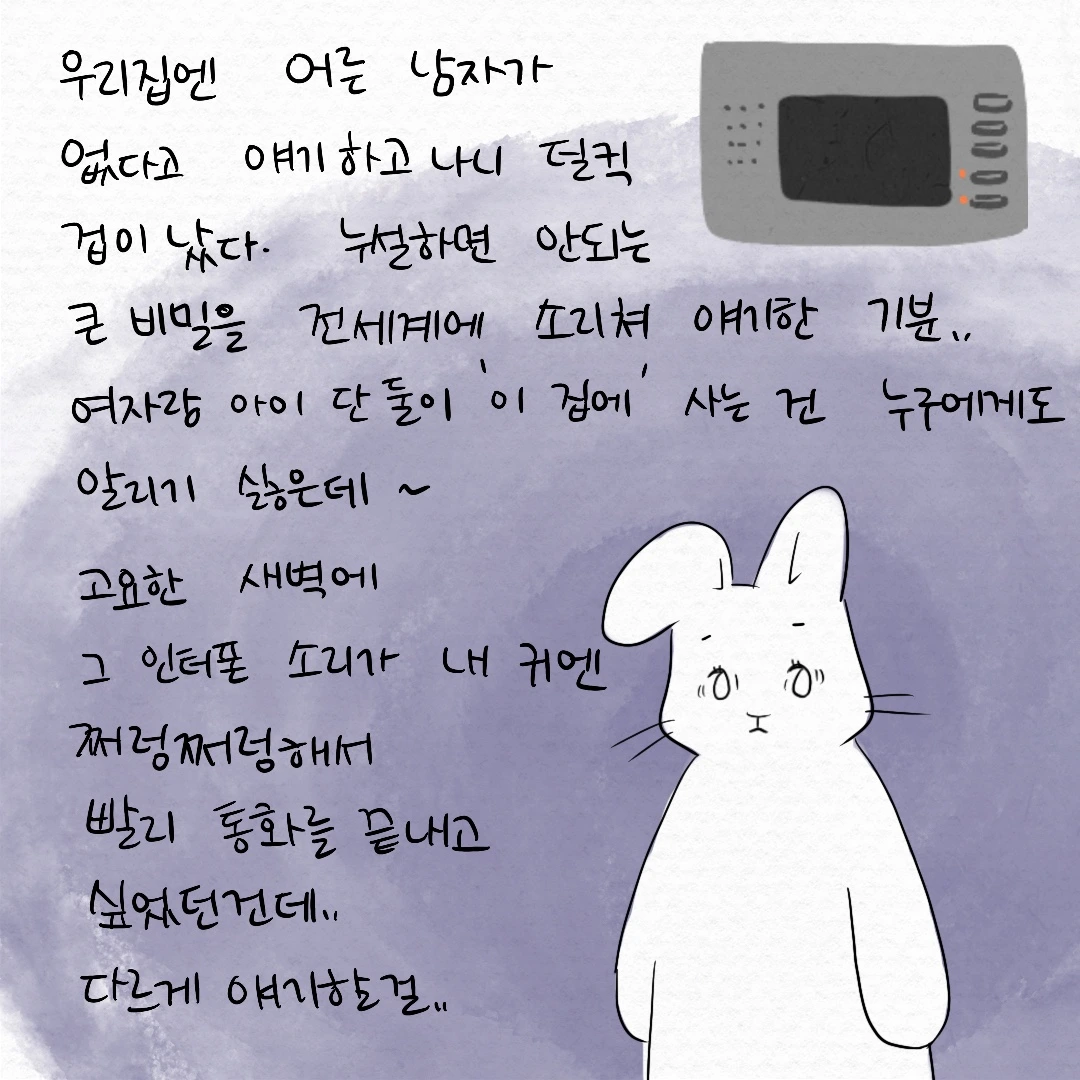 우리집엔 어른 남자가
없다고 얘기하고 나니 덜컥
겁이 났다. 누설하면 안되는
큰 비밀을 전세계에 소리쳐 얘기한 기분..
여자랑 아이 단 둘이 '이 집에' 사는 건 누구에게도
알리기 싫은데 ~
고요한 새벽에
그 인터폰 소리가 내 귀엔
쩌렁쩌렁해서
빨리 통화를 끝내고
싶었던건데..
다르게 얘기할걸..